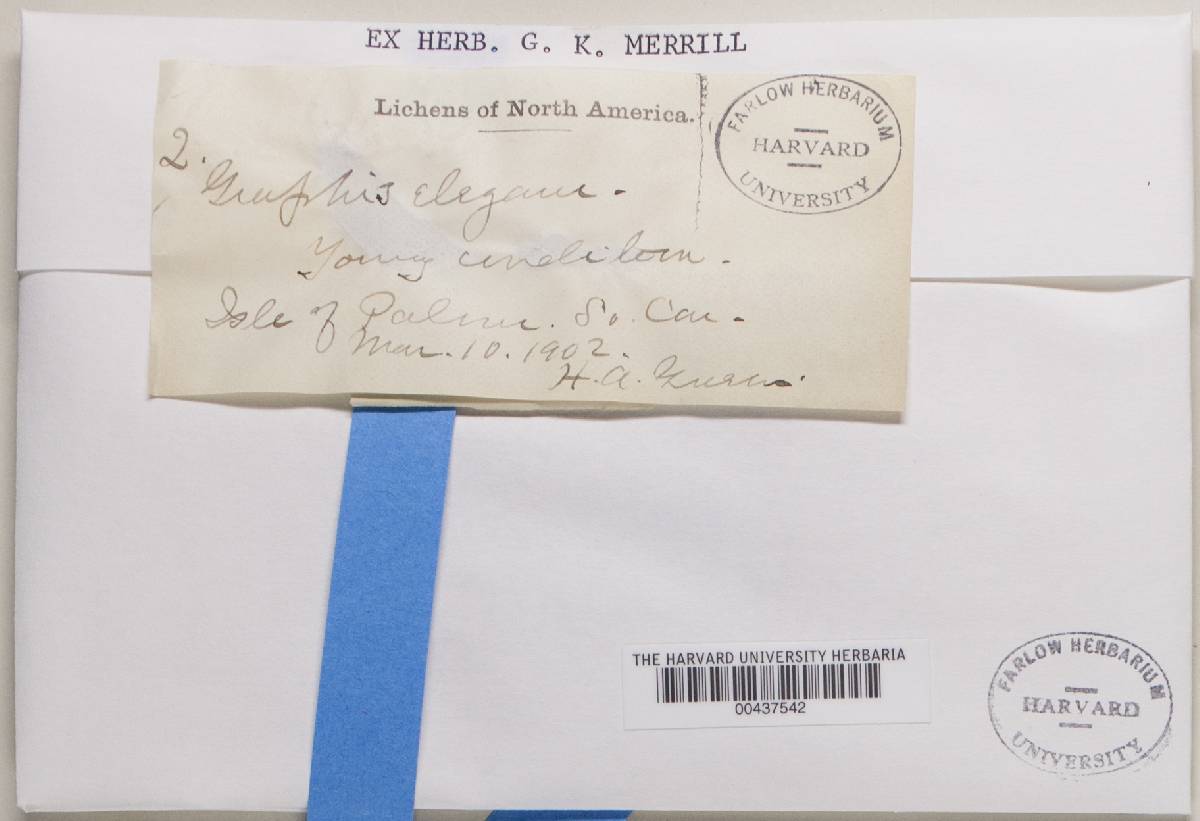 EX HERB. G. K. MERRILL
Lichens of North America.
FARLOW HERBARIUM
HARVARD
UNIVERSITY
2.
Graphis elegans.
Young condition.
Isle of Palms. So. Car.
Mar. 10. 1902.
H. A. Green.
THE HARVARD UNIVERSITY HERBARIA
00437542
FARLOW HERBARIUM
HARVARD
UNIVERSITY